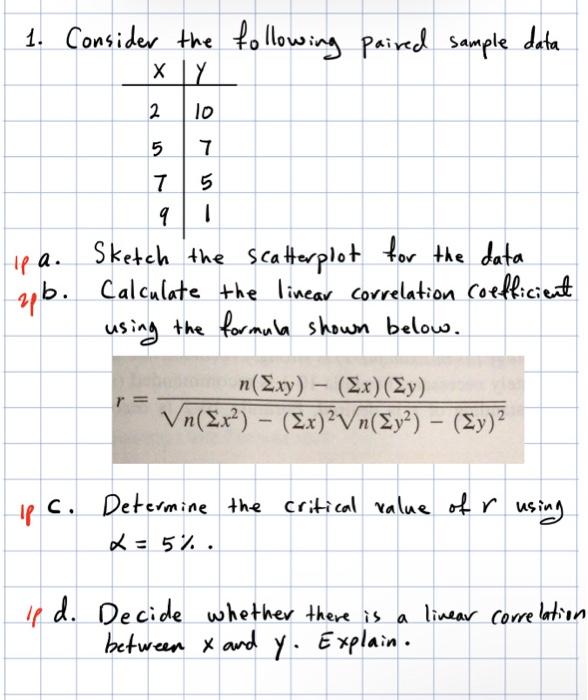 1. Consider the following paired sample data
X | Y
2 | 10
5 | 7
7 | 5
9 | 1
1p a. Sketch the scatterplot for the data
2p b. Calculate the linear correlation coefficient
using the formula shown below.
r = n(Σxy) − (Σx)(Σy) / √n(Σx²) − (Σx)² √n(Σy²) − (Σy)²
1p c. Determine the critical value of r using
α = 5%.
1p d. Decide whether there is a linear correlation
between x and y. Explain.